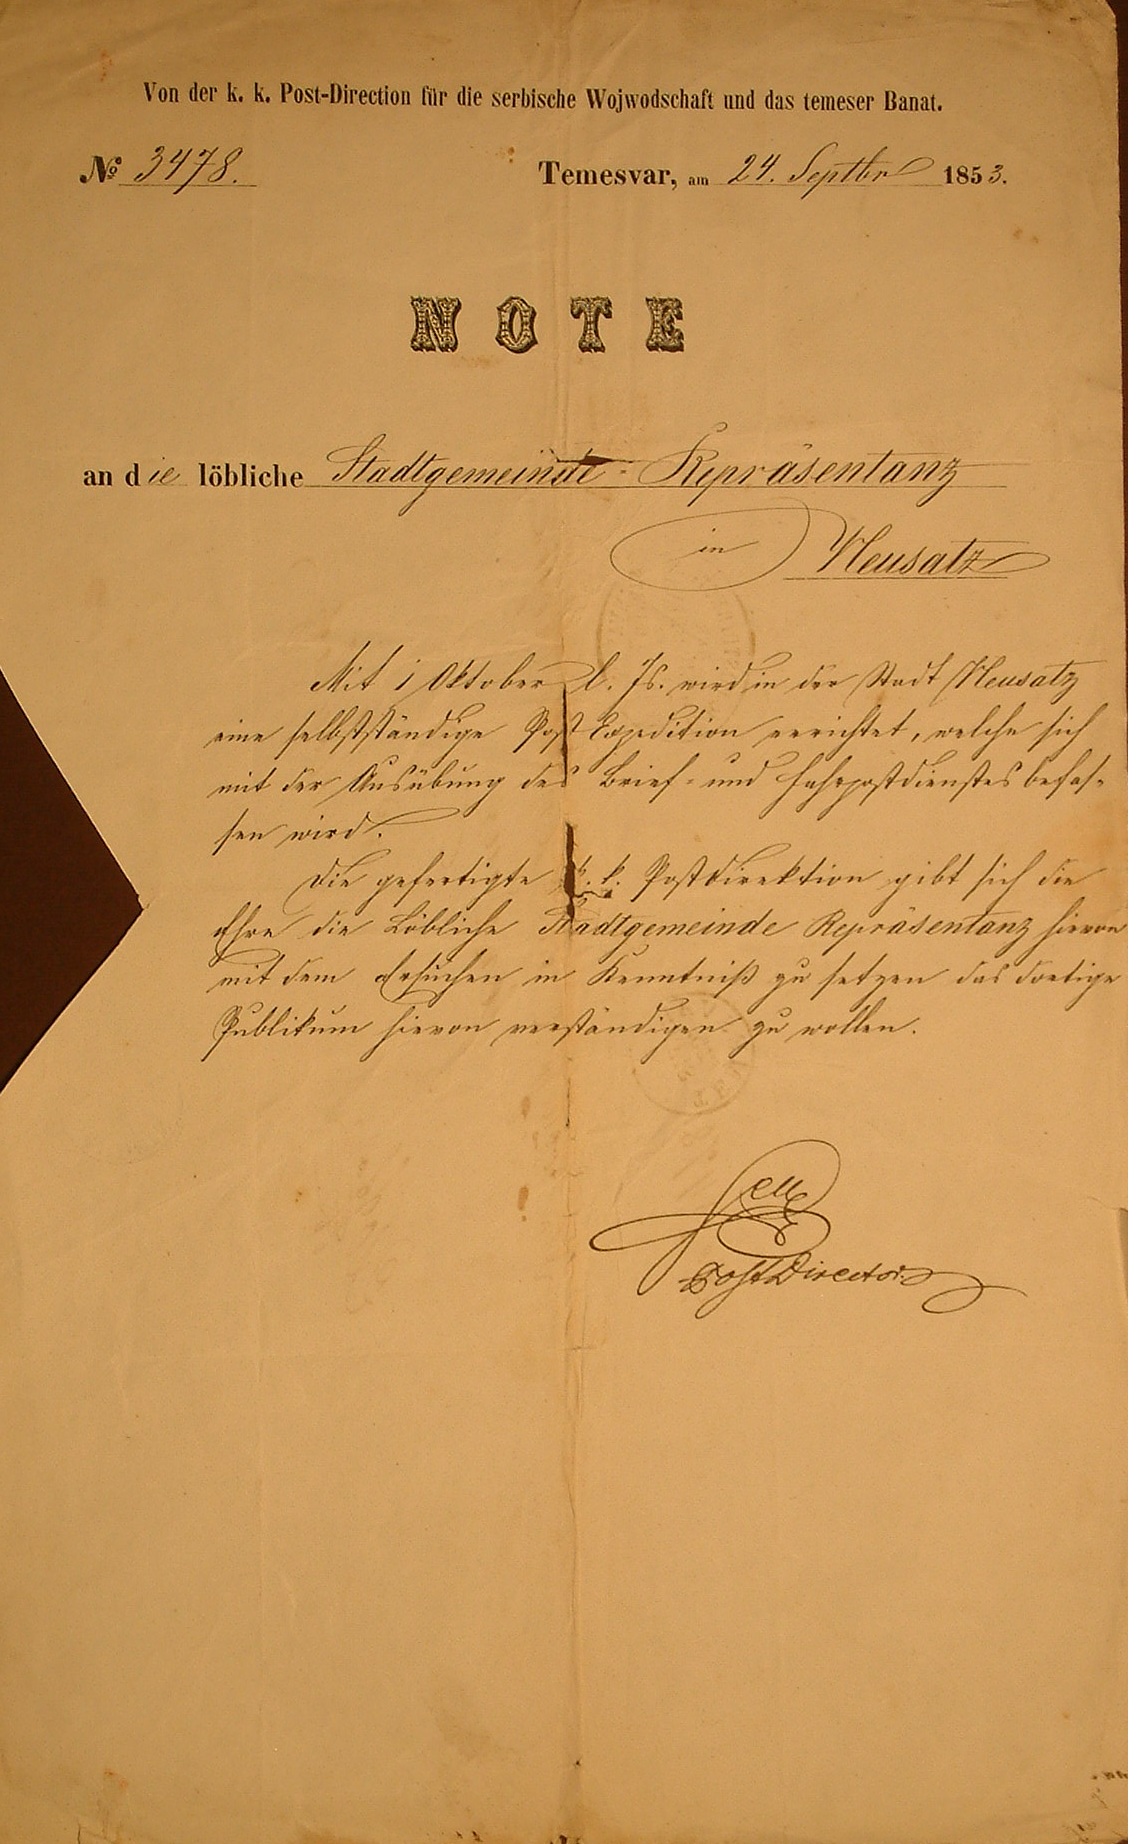 Von der k. k. Post-Direction für die serbische Wojwodschaft und das temeser Banat.
№ 3478.
Temesvar, am 24. Septbr 1853.
NOTE
an die löbliche Stadtgemeinde-Repräsentanz
in Neusatz
Mit 1 Oktober l. Js. wird in der Stadt Neusatz
eine selbstständige Post Expedition errichtet, welche sich
mit der Ausübung des Brief- und Fahrpostdienstes befas-
sen wird.
Die gefertigte k. k. Postdirektion gibt sich die
Ehre die Löbliche Stadtgemeinde Repräsentanz hievon
mit dem Ersuchen in Kenntniß zu setzen das dortige
Publikum hievon verständigen zu wollen.
PostDirector